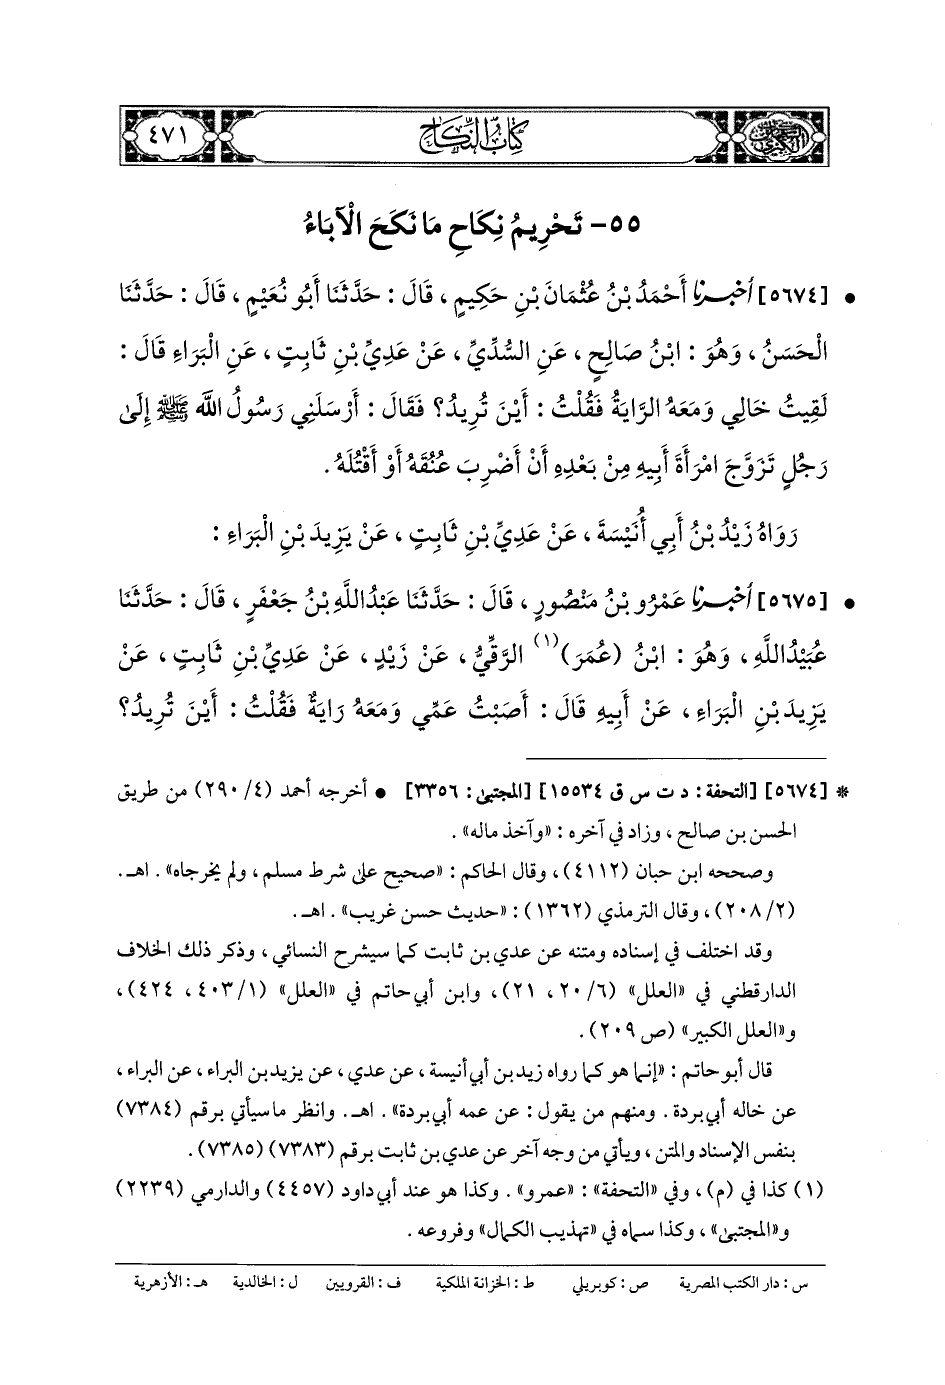 السنن الكبرى
كتاب النكاح
٤٧١
٥٥- تَحْرِيمُ نِكَاحِ مَا نَكَحَ الْآبَاءُ
• [٥٦٧٤] أخبرنا أَحْمَدُ بْنُ عُثْمَانَ بْنِ حَكِيمٍ ، قَالَ : حَدَّثَنَا أَبُو نُعَيْمٍ ، قَالَ : حَدَّثَنَا
الْحَسَنُ ، وَهُوَ : ابْنُ صَالِحٍ ، عَنِ السُّدِّيِّ ، عَنْ عَدِيِّ بْنِ ثَابِتٍ ، عَنِ الْبَرَاءِ قَالَ :
لَقِيتُ خَالِي وَمَعَهُ الرَّايَةُ فَقُلْتُ : أَيْنَ تُرِيدُ؟ فَقَالَ : أَرْسَلَنِي رَسُولُ اللَّهِ ﷺ إِلَى
رَجُلٍ تَزَوَّجَ امْرَأَةَ أَبِيهِ مِنْ بَعْدِهِ أَنْ أَضْرِبَ عُنُقَهُ أَوْ أَقْتُلَهُ .
رَوَاهُ زَيْدُ بْنُ أَبِي أُنَيْسَةَ ، عَنْ عَدِيِّ بْنِ ثَابِتٍ ، عَنْ يَزِيدَ بْنِ الْبَرَاءِ :
• [٥٦٧٥] أخبرنا عَمْرُو بْنُ مَنْصُورٍ ، قَالَ : حَدَّثَنَا عَبْدُ اللَّهِ بْنُ جَعْفَرٍ ، قَالَ : حَدَّثَنَا
عُبَيْدُ اللَّهِ ، وَهُوَ : ابْنُ (عُمَرَ)(١) الرَّقِّيُّ ، عَنْ زَيْدٍ ، عَنْ عَدِيِّ بْنِ ثَابِتٍ ، عَنْ
يَزِيدَ بْنِ الْبَرَاءِ ، عَنْ أَبِيهِ قَالَ : أَصَبْتُ عَمِّي وَمَعَهُ رَايَةٌ فَقُلْتُ : أَيْنَ تُرِيدُ؟
* [٥٦٧٤] [التحفة : د ت س ق ١٥٥٣٤] [المجتبى : ٣٣٥٦] • أخرجه أحمد (٤/ ٢٩٠) من طريق
الحسن بن صالح ، وزاد في آخره : «وآخذ ماله» .
وصححه ابن حبان (٤١١٢) ، وقال الحاكم : «صحيح على شرط مسلم ، ولم يخرجاه» . اهـ .
(٢/ ٢٠٨) ، وقال الترمذي (١٣٦٢) : «حديث حسن غريب» . اهـ .
وقد اختلف في إسناده ومتنه عن عدي بن ثابت كما سيشرح النسائي ، وذكر ذلك الخلاف
الدارقطني في «العلل» (٦/ ٢٠، ٢١)، وابن أبي حاتم في «العلل» (١/ ٤٠٣، ٤٢٤)،
و«العلل الكبير» (ص ٢٠٩) .
قال أبو حاتم : «إنما هو كما رواه زيد بن أبي أنيسة ، عن عدي ، عن يزيد بن البراء ، عن البراء ،
عن خاله أبي بردة . ومنهم من يقول : عن عمه أبي بردة» . اهـ . وانظر ما سيأتي برقم (٧٣٨٤)
بنفس الإسناد والمتن ، ويأتي من وجه آخر عن عدي بن ثابت برقم (٧٣٨٣) (٧٣٨٥) .
(١) كذا في (م) ، وفي «التحفة» : «عمرو» . وكذا هو عند أبي داود (٤٤٥٧) والدارمي (٢٢٣٩)
و«المجتبى» ، وكذا سماه في «تهذيب الكمال» وفروعه .
س : دار الكتب المصرية ص : كوبريلي ط : الخزانة الملكية ف : القرويين ل : الخالدية هـ : الأزهرية